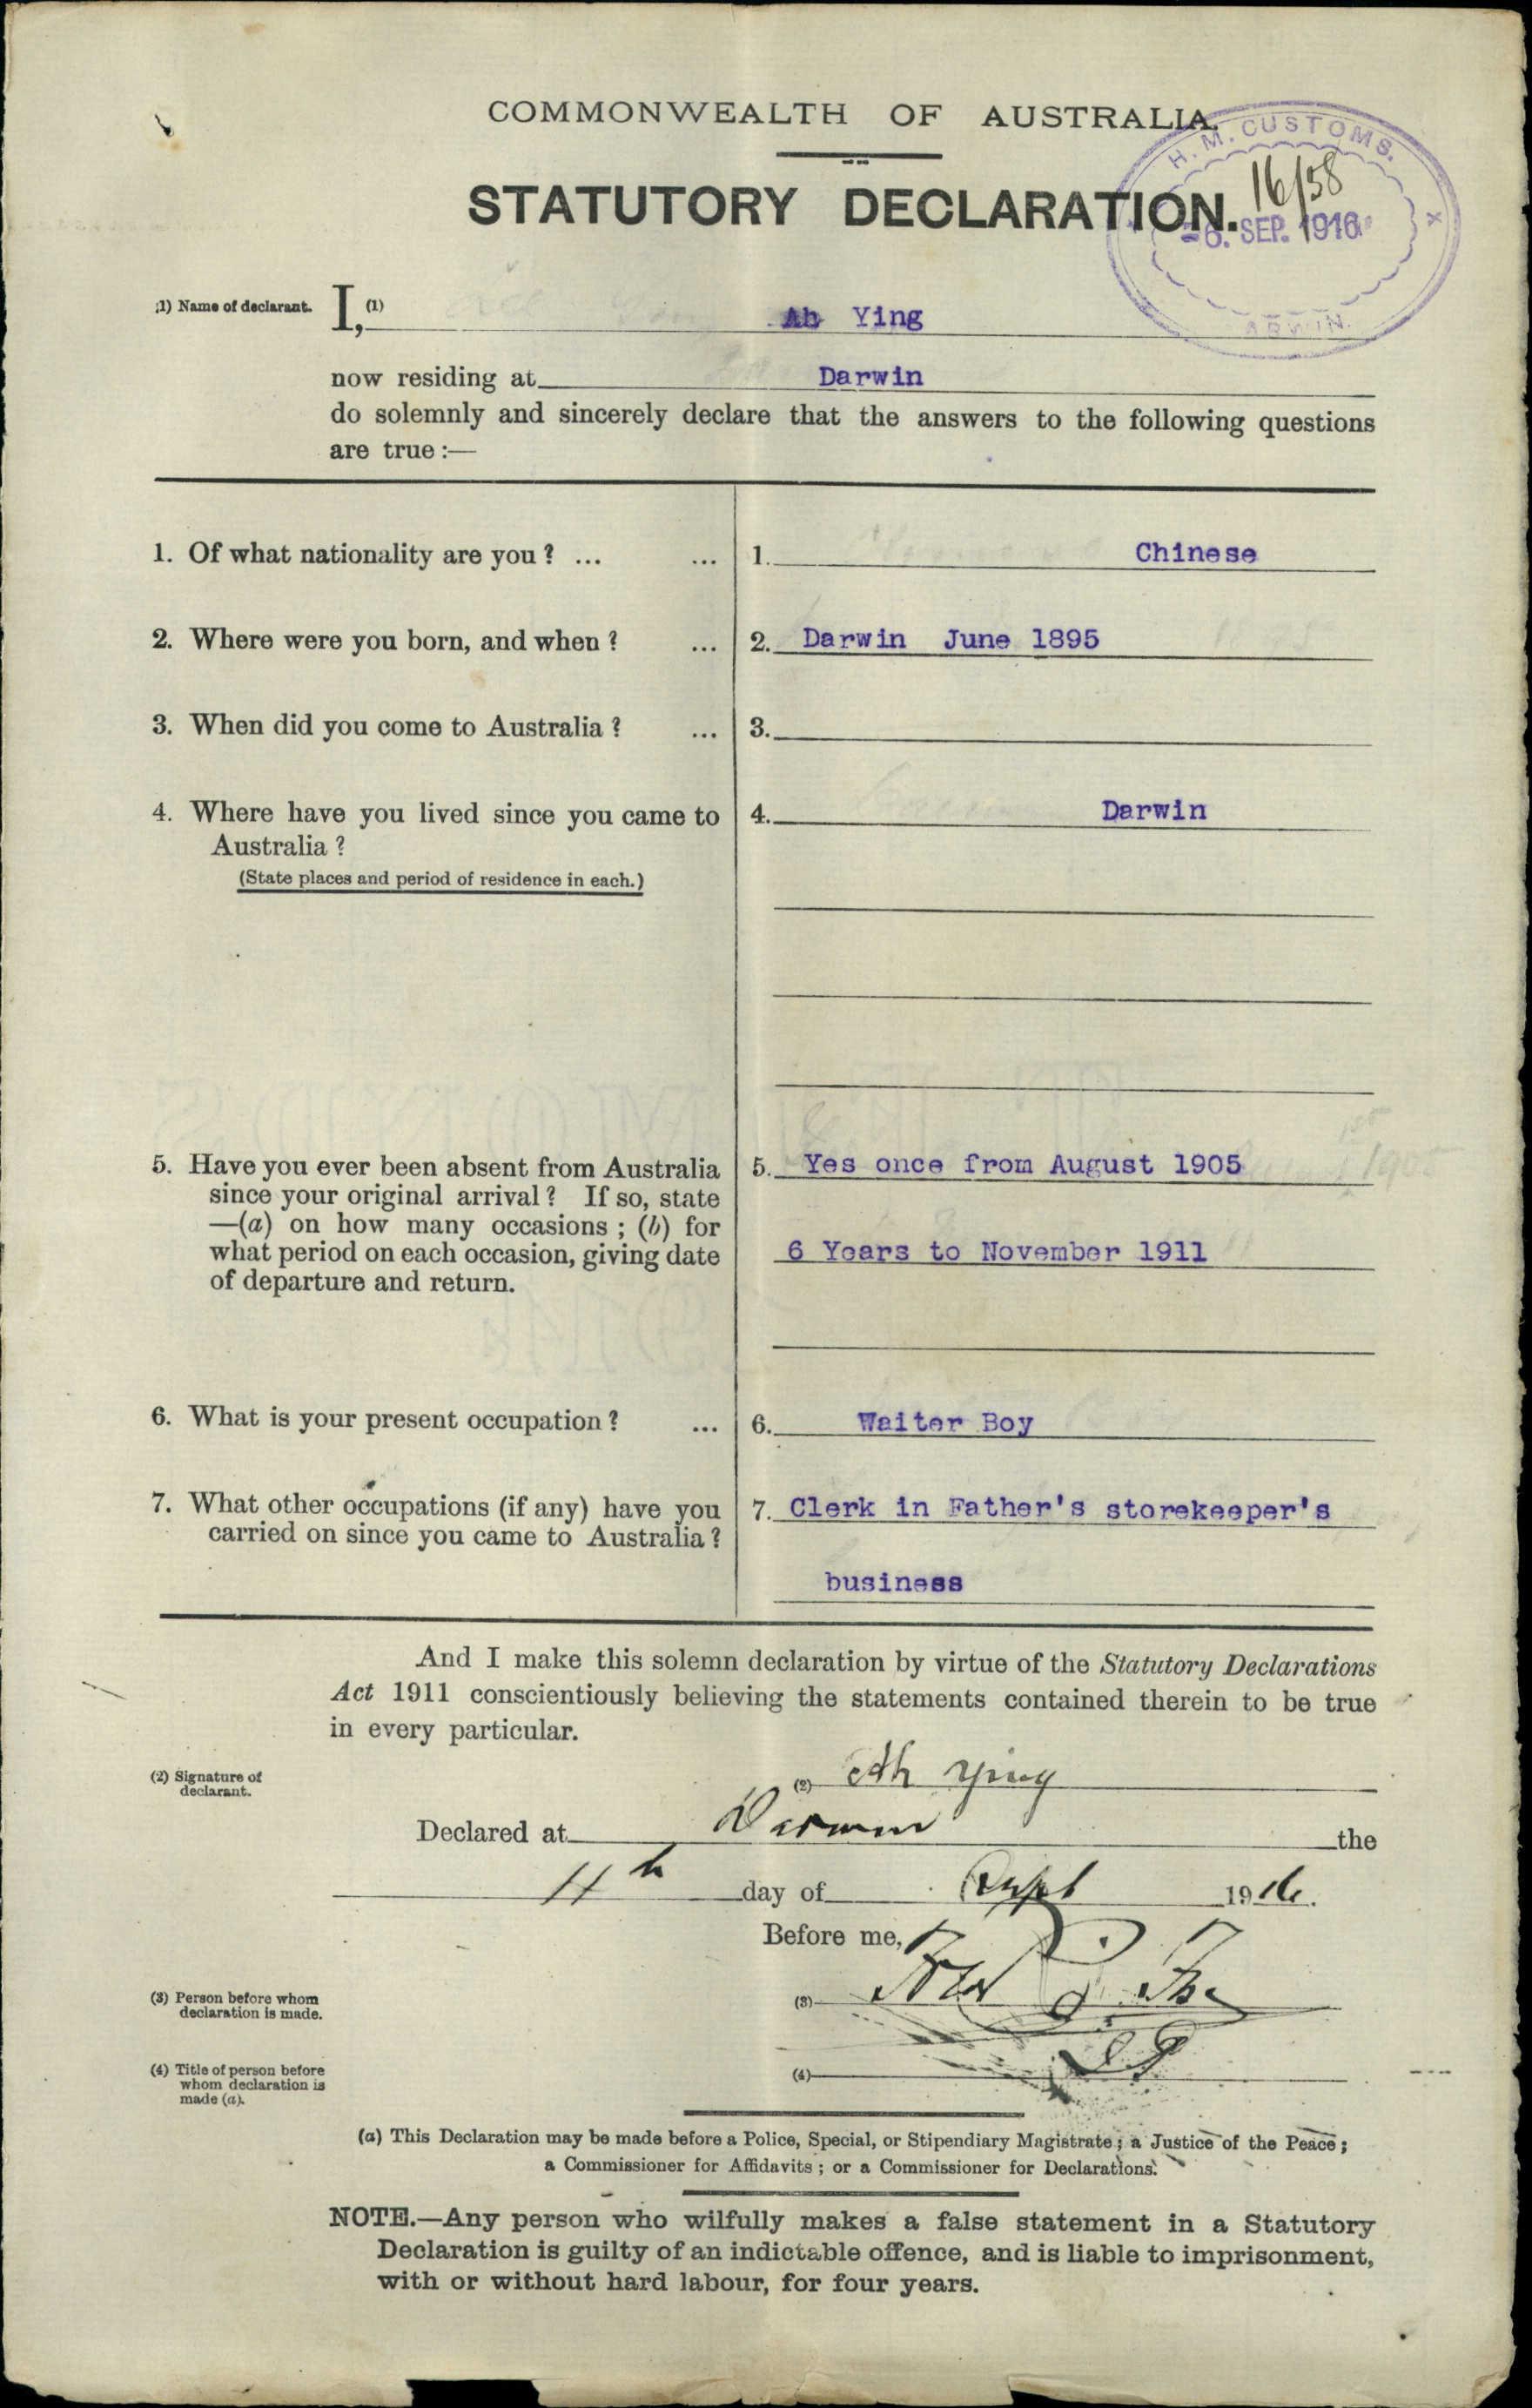 COMMONWEALTH OF AUSTRALIA.
H. M. CUSTOMS.
16/58
STATUTORY DECLARATION.
6. SEP. 1916
ARWIN.
(1) Name of declarant. I, (1) Ah Ying
now residing at Darwin
do solemnly and sincerely declare that the answers to the following questions
are true :—
1. Of what nationality are you ? ... ... 1. Chinese
2. Where were you born, and when ? ... 2. Darwin June 1895
3. When did you come to Australia ? ... 3.
4. Where have you lived since you came to 4. Darwin
Australia ?
(State places and period of residence in each.)
5. Have you ever been absent from Australia 5. Yes once from August 1905
since your original arrival ? If so, state
—(a) on how many occasions ; (b) for
what period on each occasion, giving date 6 Years to November 1911
of departure and return.
6. What is your present occupation ? ... 6. Waiter Boy
7. What other occupations (if any) have you 7. Clerk in Father's storekeeper's
carried on since you came to Australia ?
business
And I make this solemn declaration by virtue of the Statutory Declarations
Act 1911 conscientiously believing the statements contained therein to be true
in every particular.
(2) Signature of
declarant.
(2) Ah Ying
Declared at Darwin the
11th day of Sept 1916.
Before me,
(3) Person before whom
declaration is made.
(3)
(4) Title of person before
whom declaration is
made (a).
(4)
(a) This Declaration may be made before a Police, Special, or Stipendiary Magistrate ; a Justice of the Peace ;
a Commissioner for Affidavits ; or a Commissioner for Declarations.
NOTE.—Any person who wilfully makes a false statement in a Statutory
Declaration is guilty of an indictable offence, and is liable to imprisonment,
with or without hard labour, for four years.